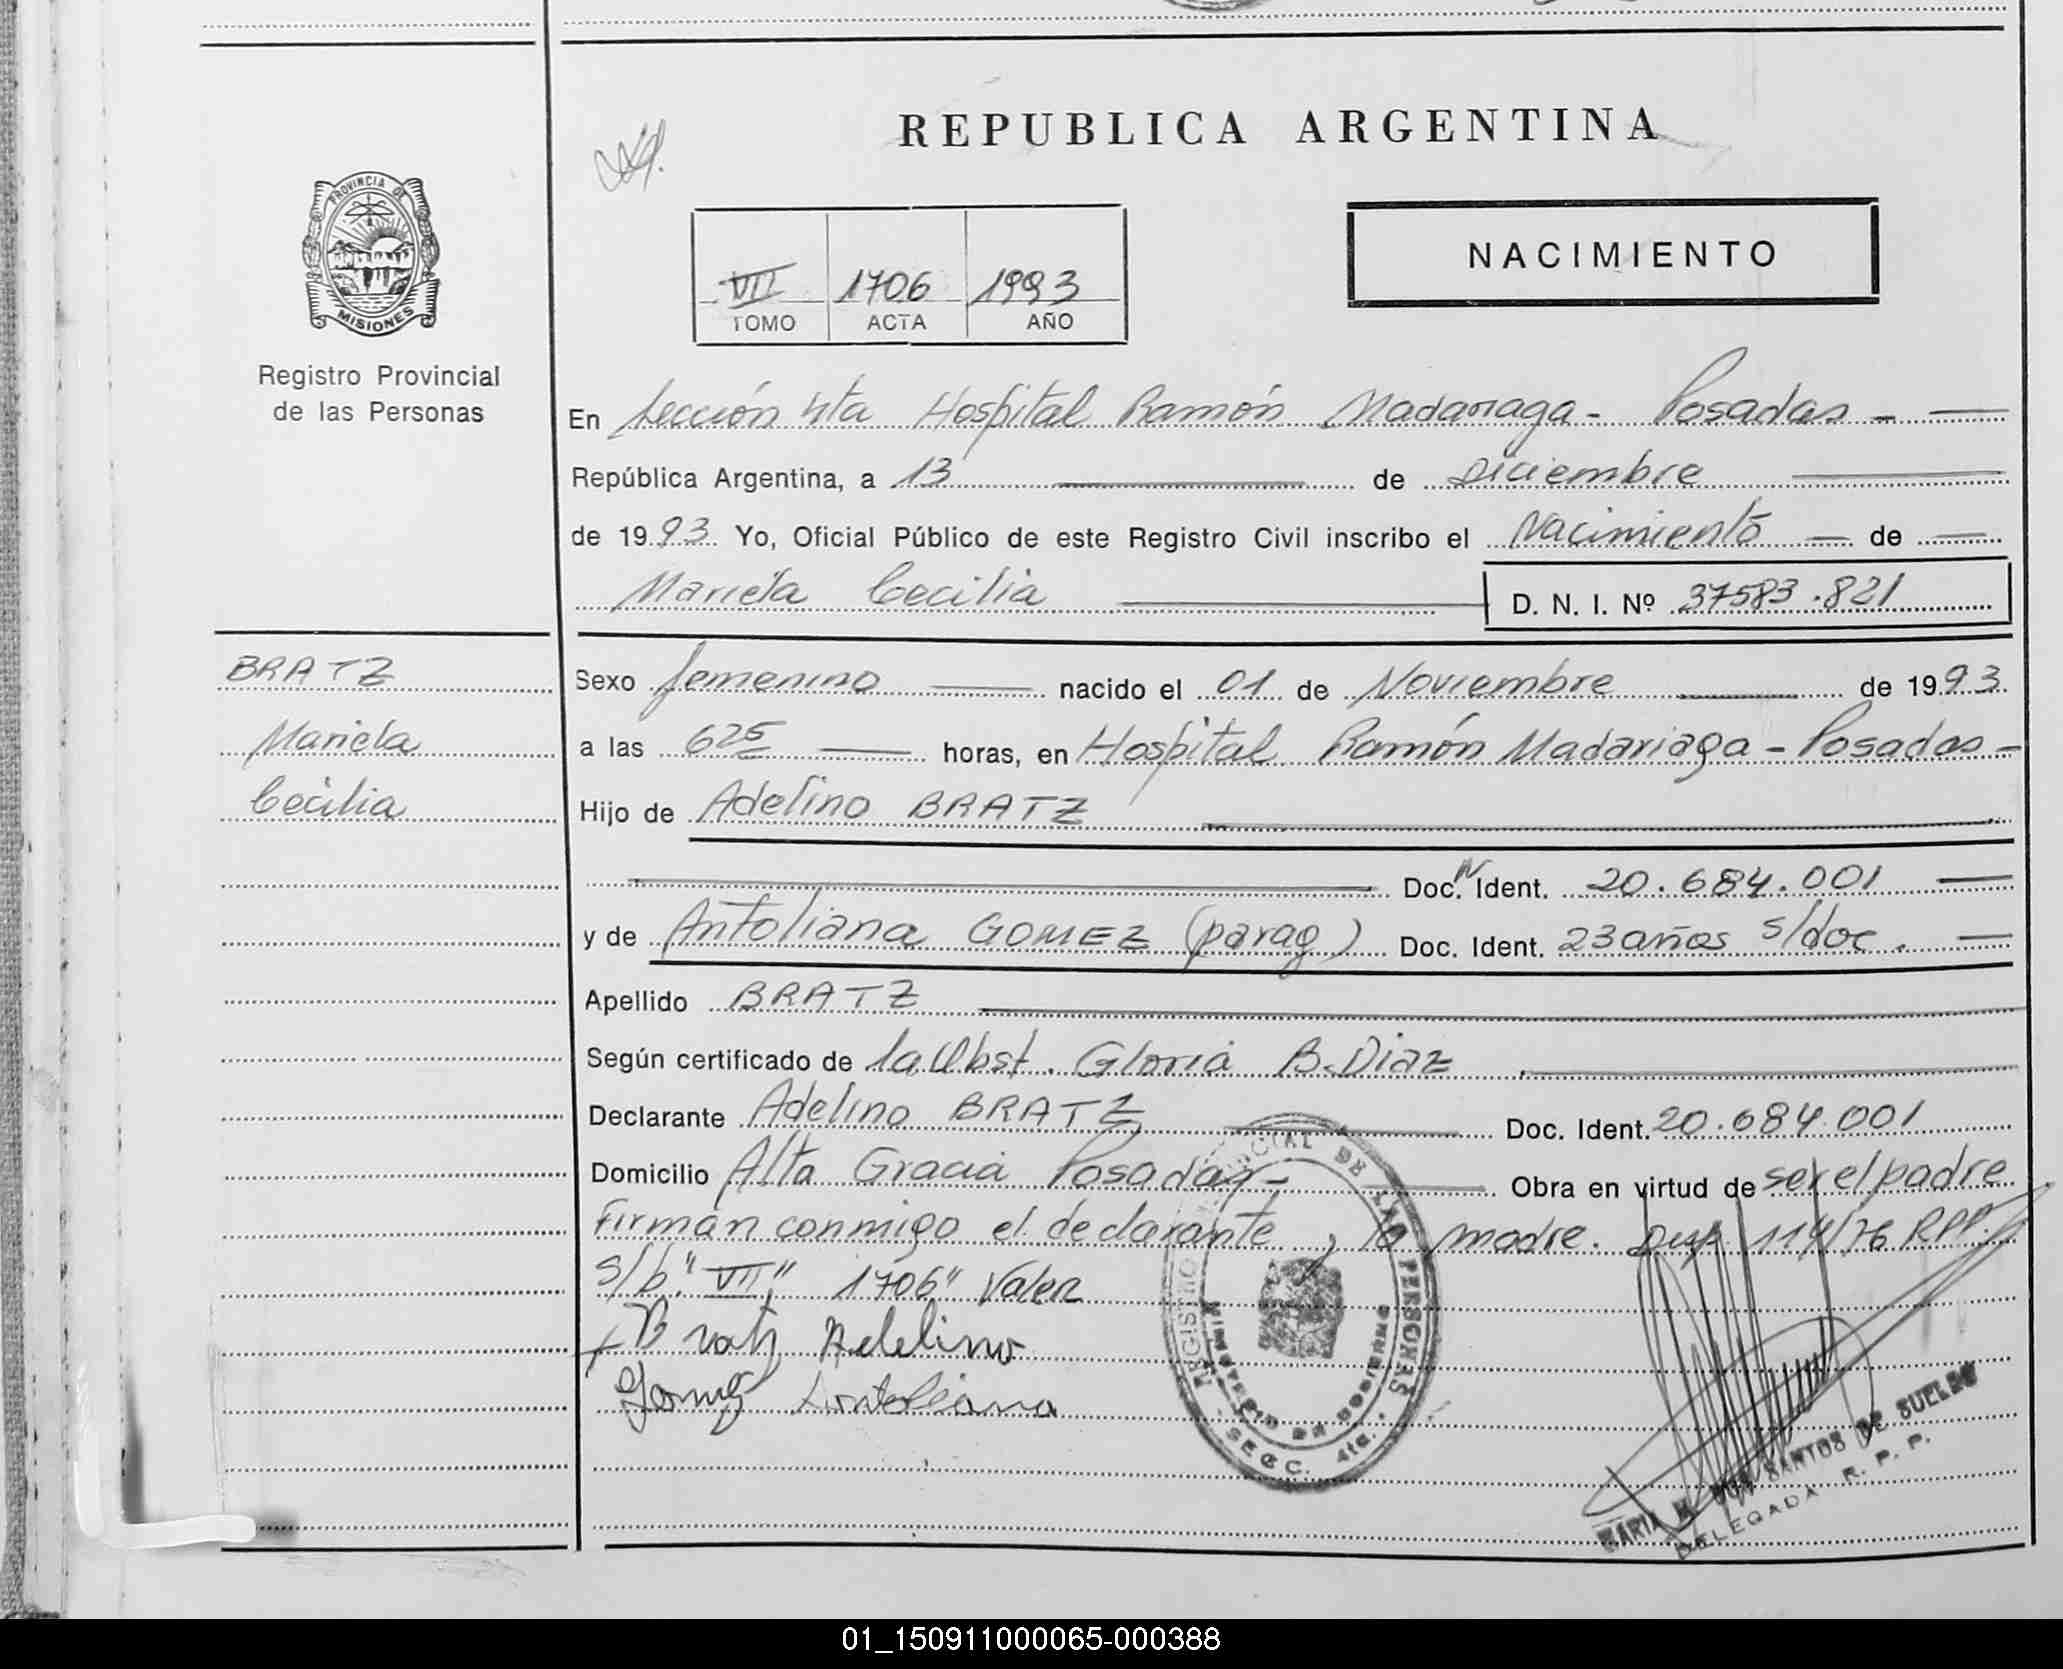 REPUBLICA ARGENTINA
PROVINCIA DE
MISIONES
NACIMIENTO
VII 1706 1993
TOMO ACTA AÑO
Registro Provincial
de las Personas
En Sección 4ta Hospital Ramón Madariaga - Posadas -
República Argentina, a 13 de Diciembre
de 1993 Yo, Oficial Público de este Registro Civil inscribo el Nacimiento de
Mariela Cecilia D. N. I. Nº 37583.821
BRATZ
Mariela
Cecilia
Sexo femenino nacido el 01 de Noviembre de 1993
a las 625 horas, en Hospital Ramón Madariaga - Posadas -
Hijo de Adelino BRATZ
Doc. N Ident. 20.684.001
y de Antoliana GOMEZ (parag) Doc. Ident. 23 años s/doc.
Apellido BRATZ
Según certificado de la Obst. Gloria B. Diaz
Declarante Adelino BRATZ Doc. Ident. 20.684.001
Domicilio Alta Gracia Posadas - Obra en virtud de ser el padre
Firman conmigo el declarante y la madre. Disp 114/76 RPP.
s/b "VII" 1706" Valen
Bratz Adelino
Gomez Antoliana
REGISTRO PROVINCIAL DE LAS PERSONAS
MINISTERIO DE GOBIERNO
SECC. 4ta.
MARIA M. DOS SANTOS DE SUELDO
DELEGADA R. P. P.
01_150911000065-000388